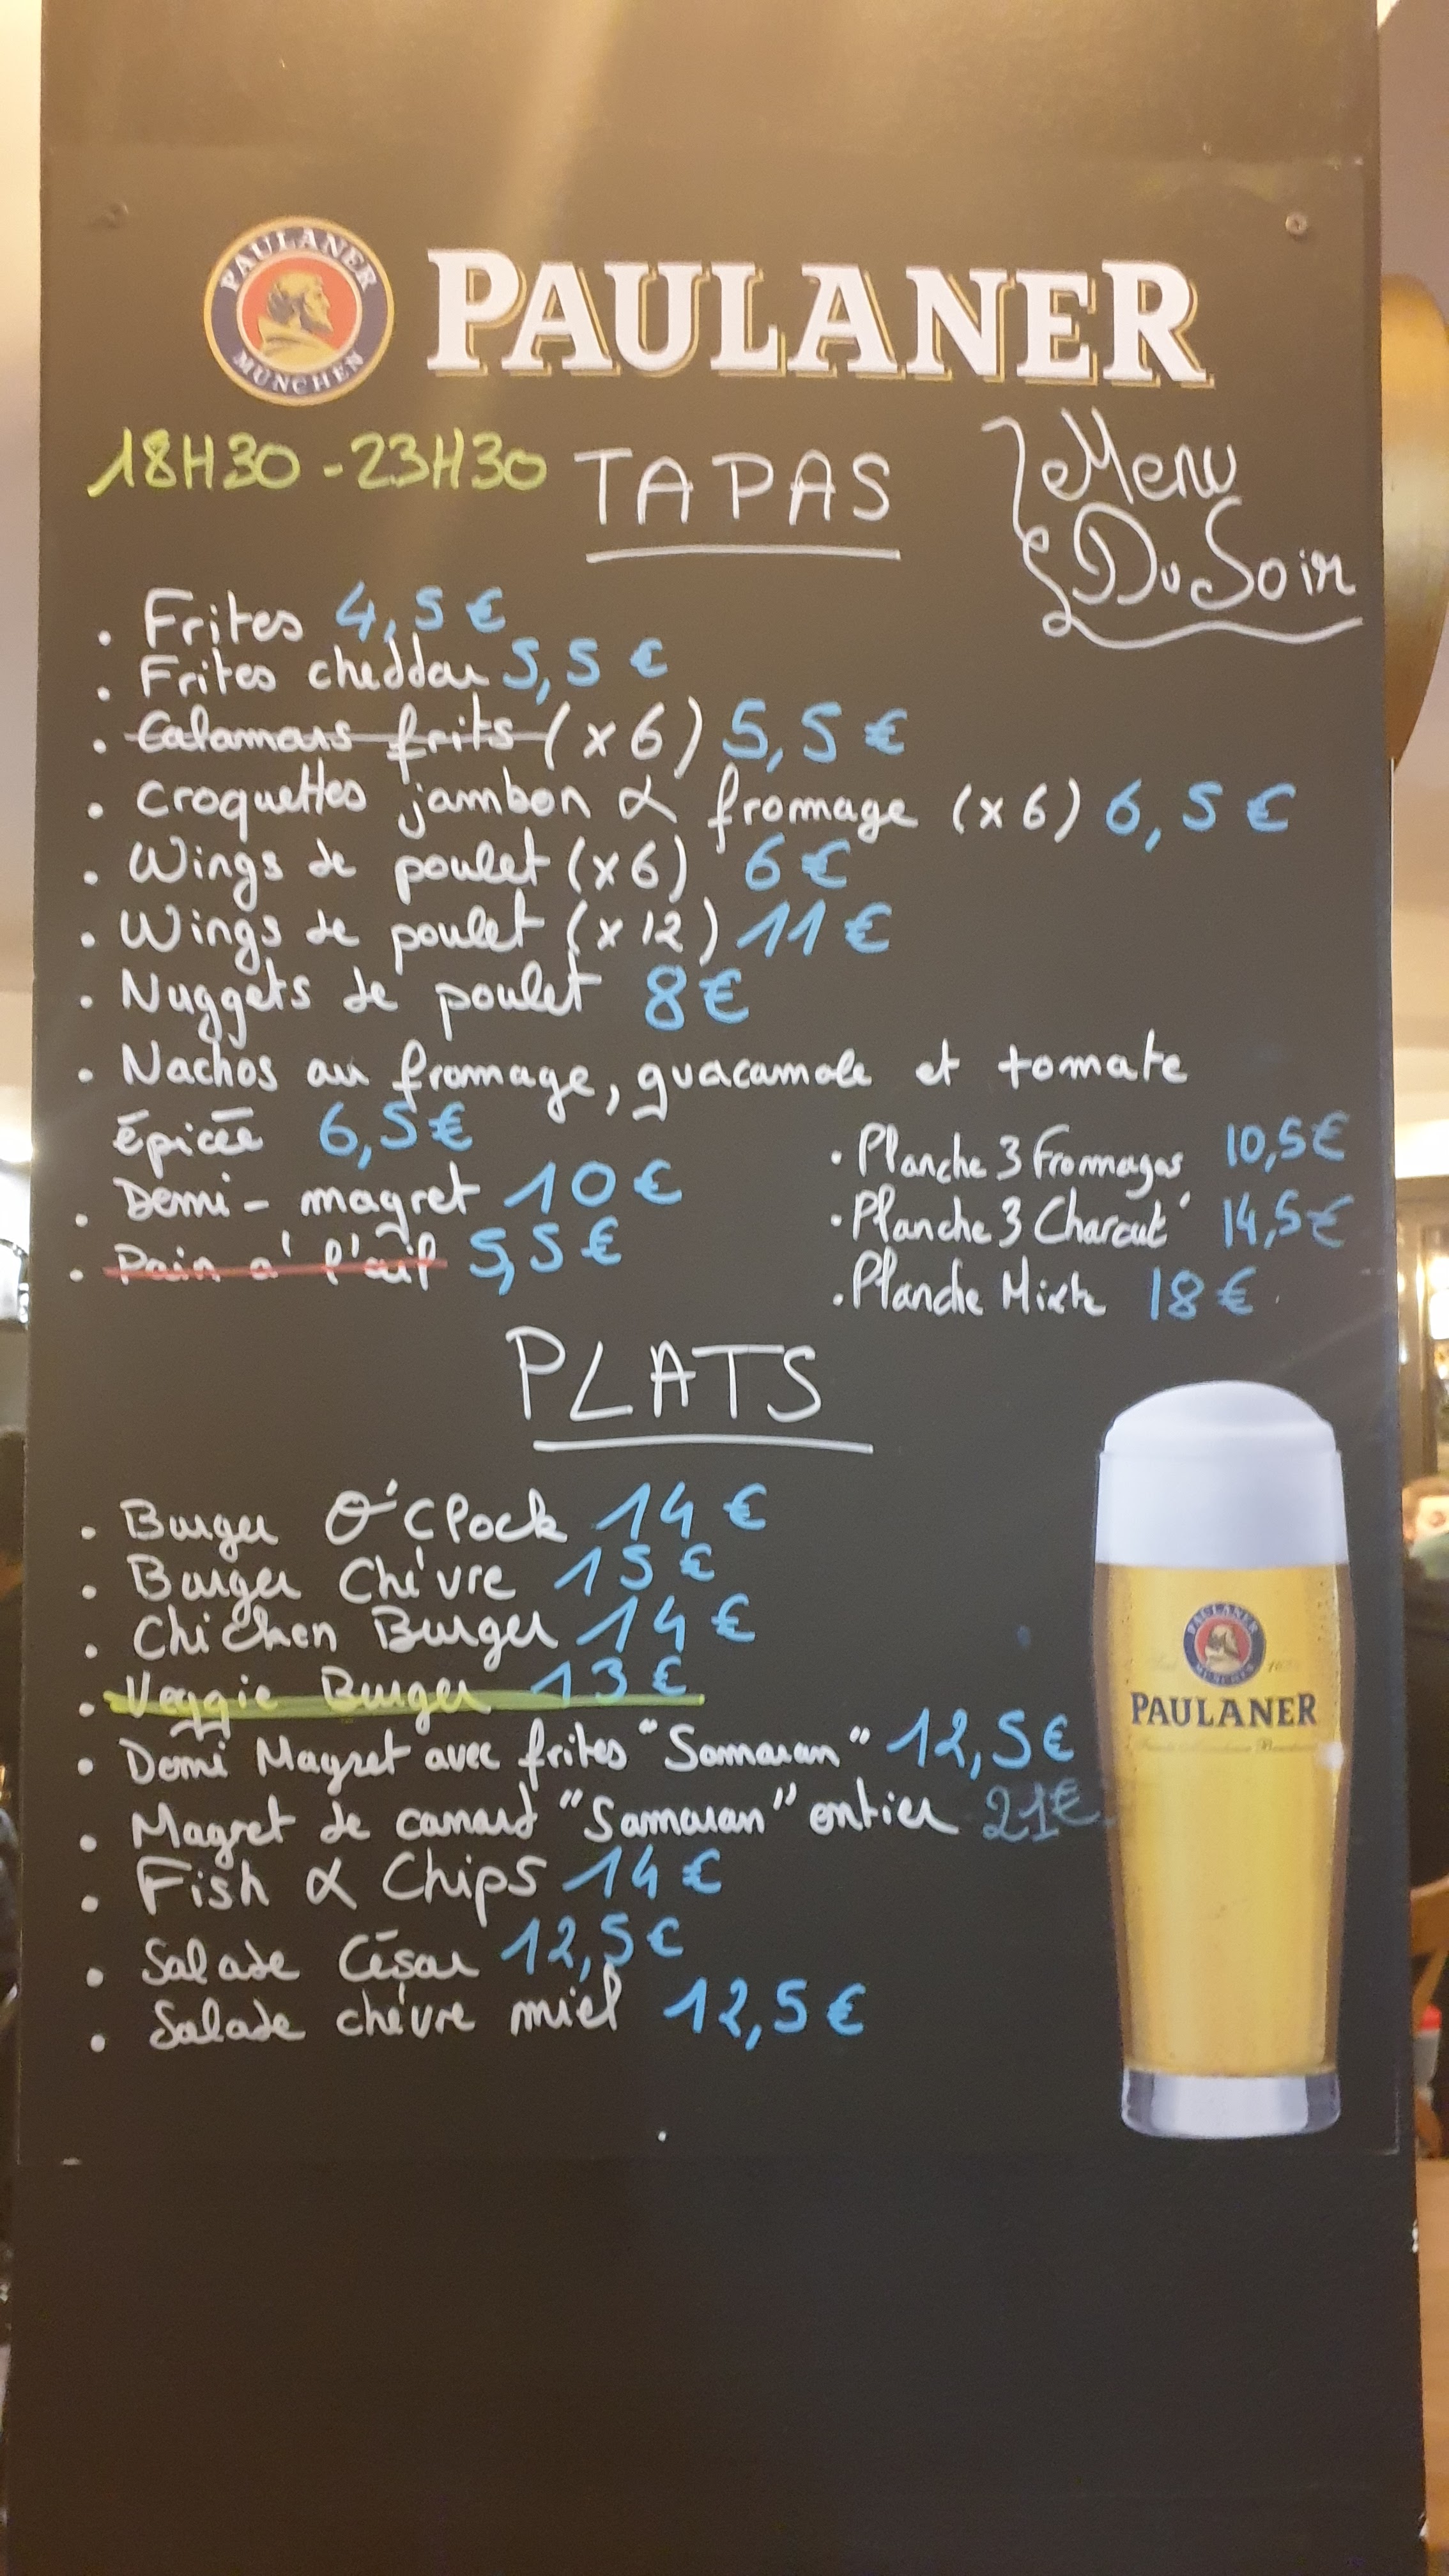 PAULANER
MÜNCHEN
PAULANER
18H30 - 23H30
TAPAS
Menu
Du Soir
. Frites 4,5 €
. Frites cheddar 5,5 €
. Calamars frits (x6) 5,5 €
. Croquettes jambon & fromage (x6) 6,5 €
. Wings de poulet (x6) 6 €
. Wings de poulet (x12) 11 €
. Nuggets de poulet 8 €
. Nachos au fromage, guacamole et tomate
épicée 6,5 €
. Demi - magret 10 €
. Pain à l'ail 5,5 €
. Planche 3 Fromages 10,5 €
. Planche 3 Charcut' 14,5 €
. Planche Mixte 18 €
PLATS
. Burger O'Clock 14 €
. Burger Chèvre 15 €
. Chicken Burger 14 €
. Veggie Burger 13 €
. Demi Magret avec frites "Samaran" 12,5 €
. Magret de canard "Samaran" entier 21 €
. Fish & Chips 14 €
. Salade César 12,5 €
. Salade chèvre miel 12,5 €
PAULANER
MÜNCHEN
PAULANER